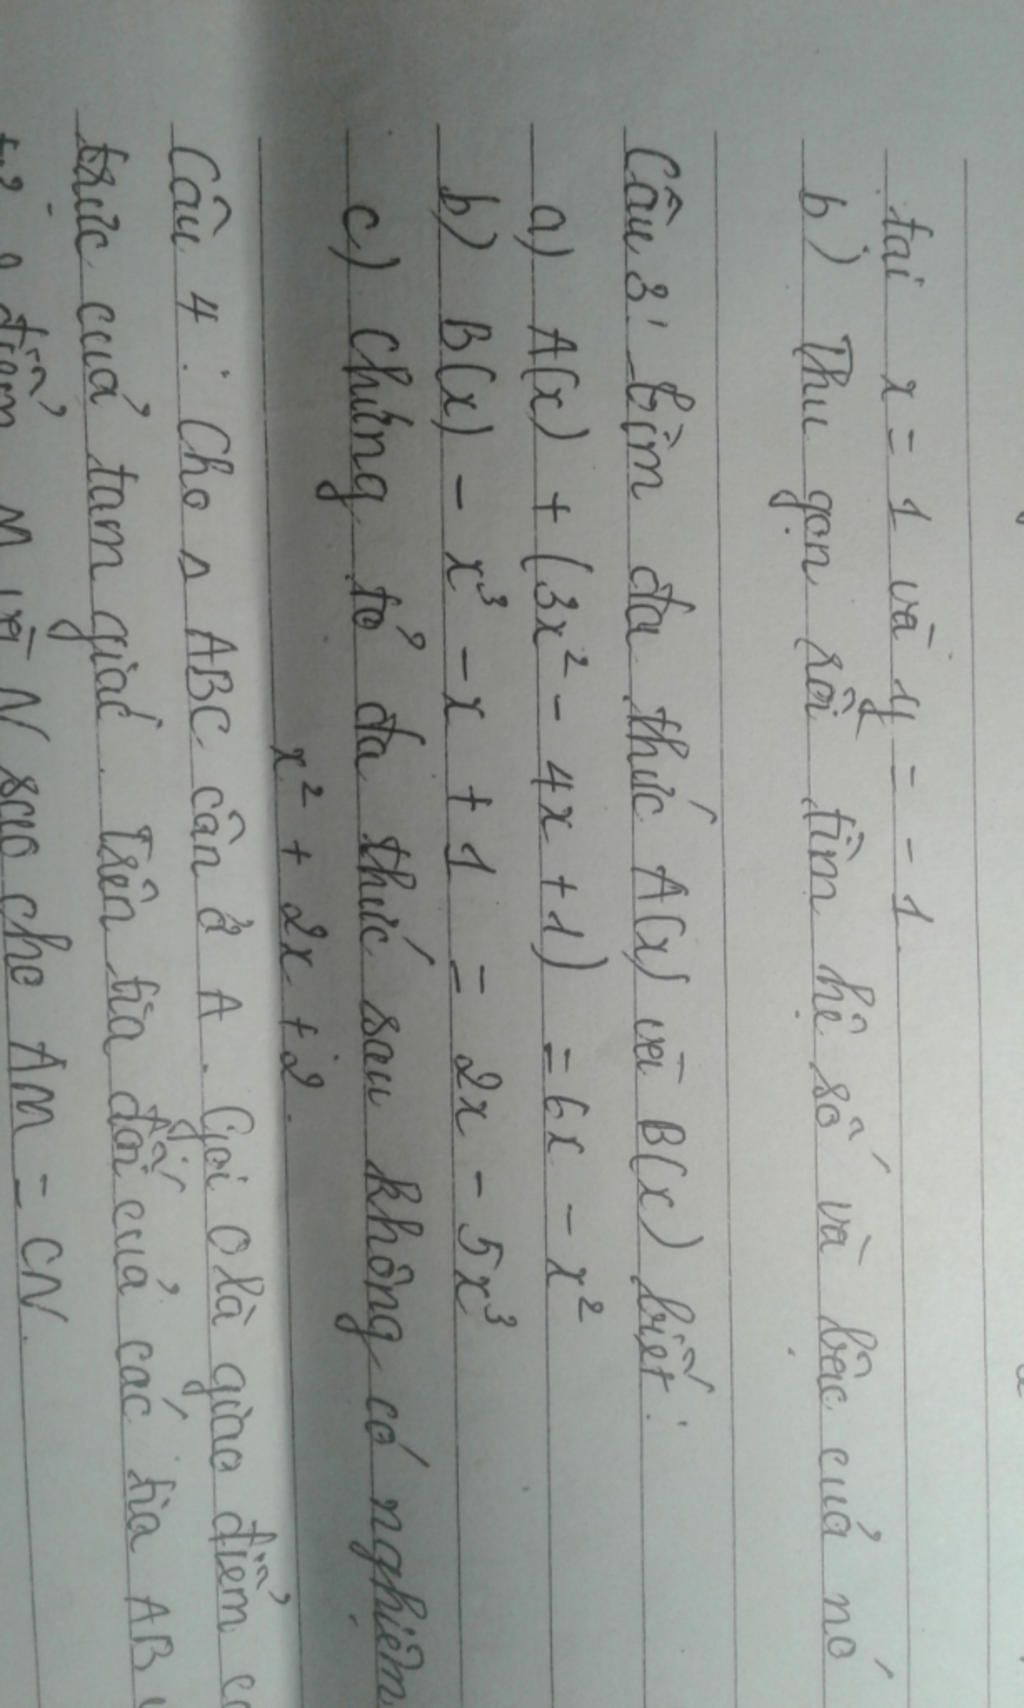 tại x = 1 và y = -1.
b) Thu gọn rồi tìm hệ số và bậc của nó
Câu 3: tìm đa thức A(x) và B(x) biết:
a) A(x) + (3x² - 4x + 1) = 6x - x²
b) B(x) - x³ - x + 1 = 2x - 5x³
c) Chứng tỏ đa thức sau không có nghiệm
x² + 2x + 2.
Câu 4: Cho Δ ABC cân ở A. Gọi O là giao điểm
trực của tam giác. Trên tia đối của các tia AB
điểm M và N sao cho AM = CN.